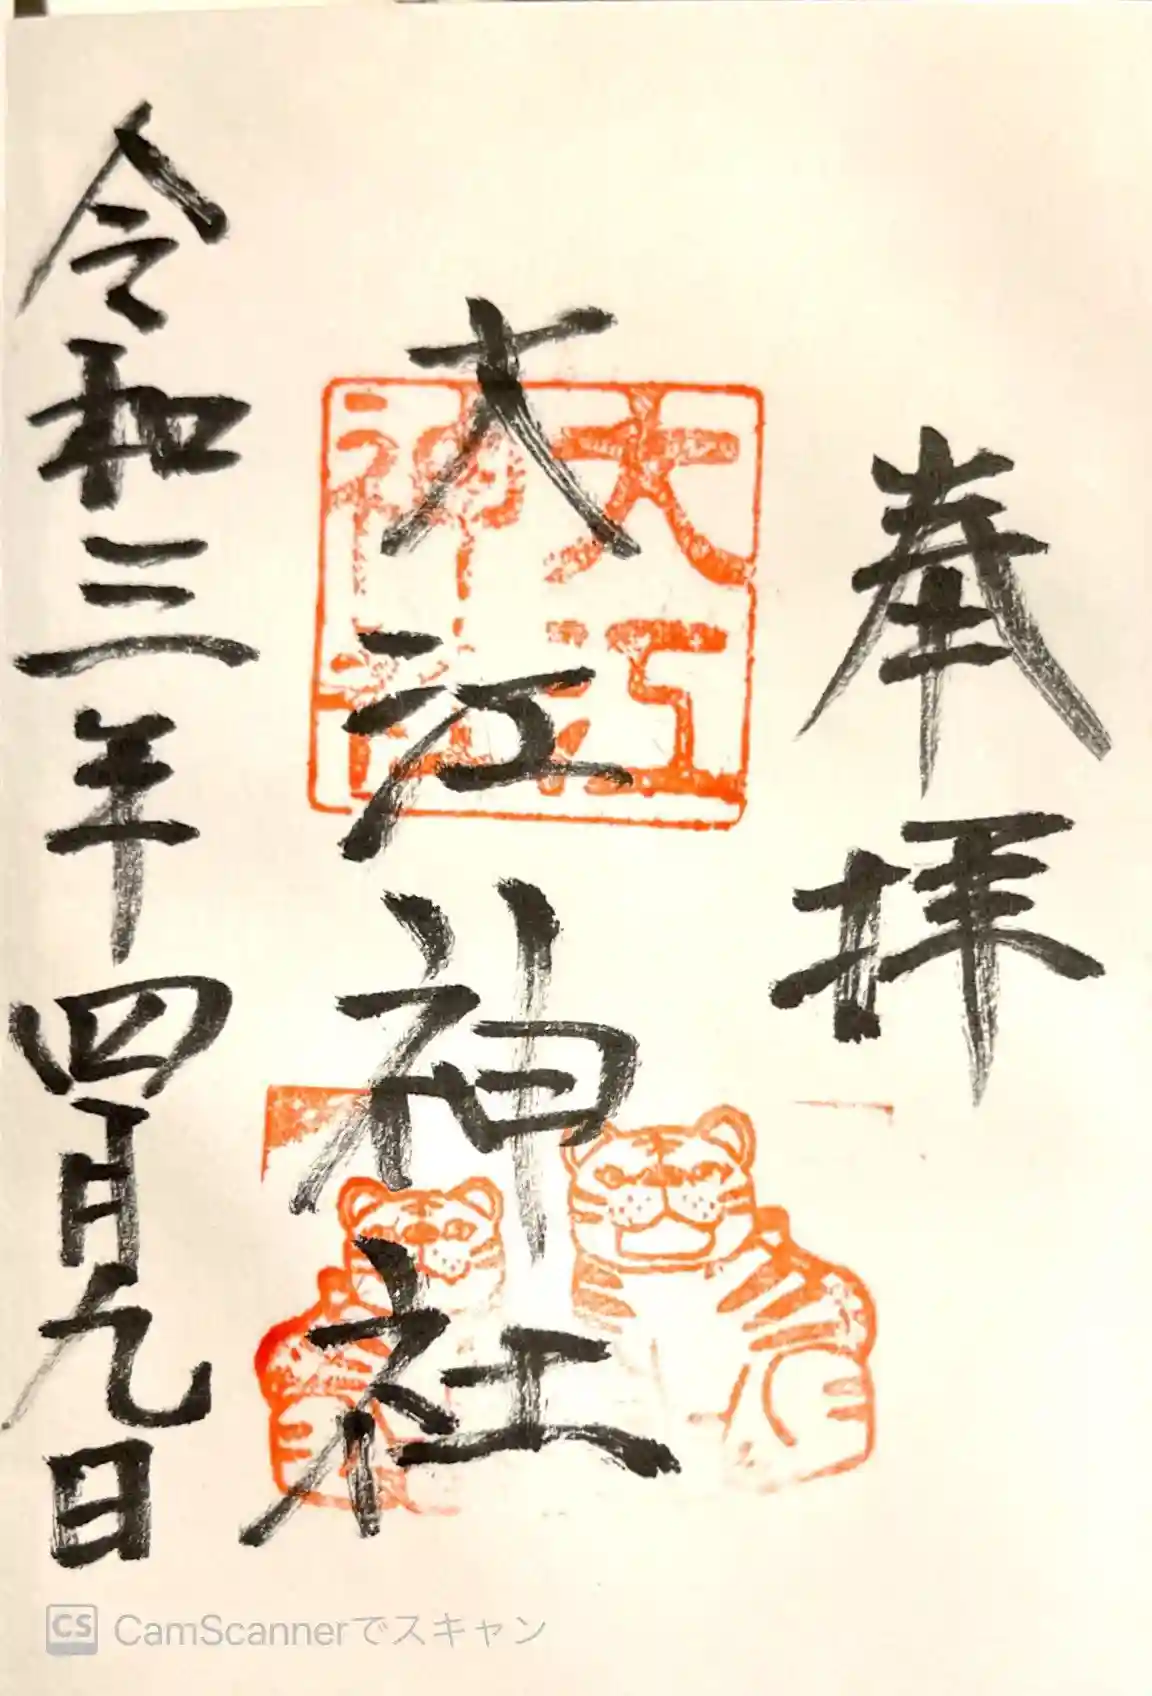 奉拝
大江神社
大江
神社
令和三年四月九日
CS CamScannerでスキャン